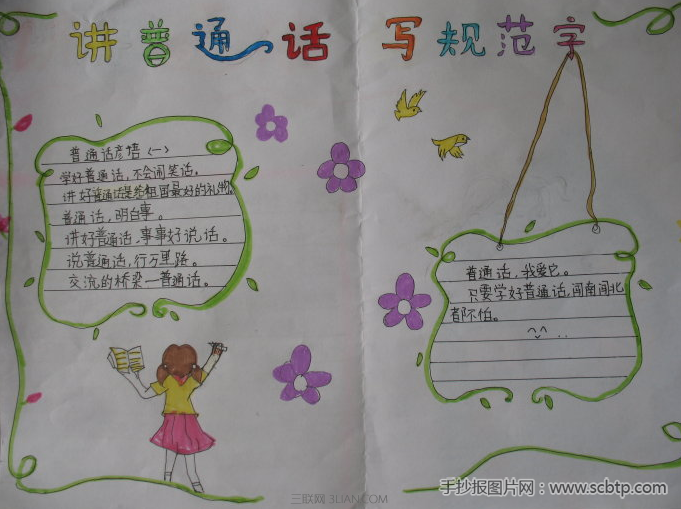 讲普通话 写规范字
普通话彦悟〈一〉
学好普通话,不会闹笑话。
讲好普通话是给祖国最好的礼物。
普通话,明白事。
讲好普通话、事事好说话。
说普通话,行万里路。
交流的桥梁—普通话。
普通话,我爱它。
只要学好普通话,闯南闯北
都不怕。
三联网 3LIAN.COM
手抄报图片网:www.scbtp.com